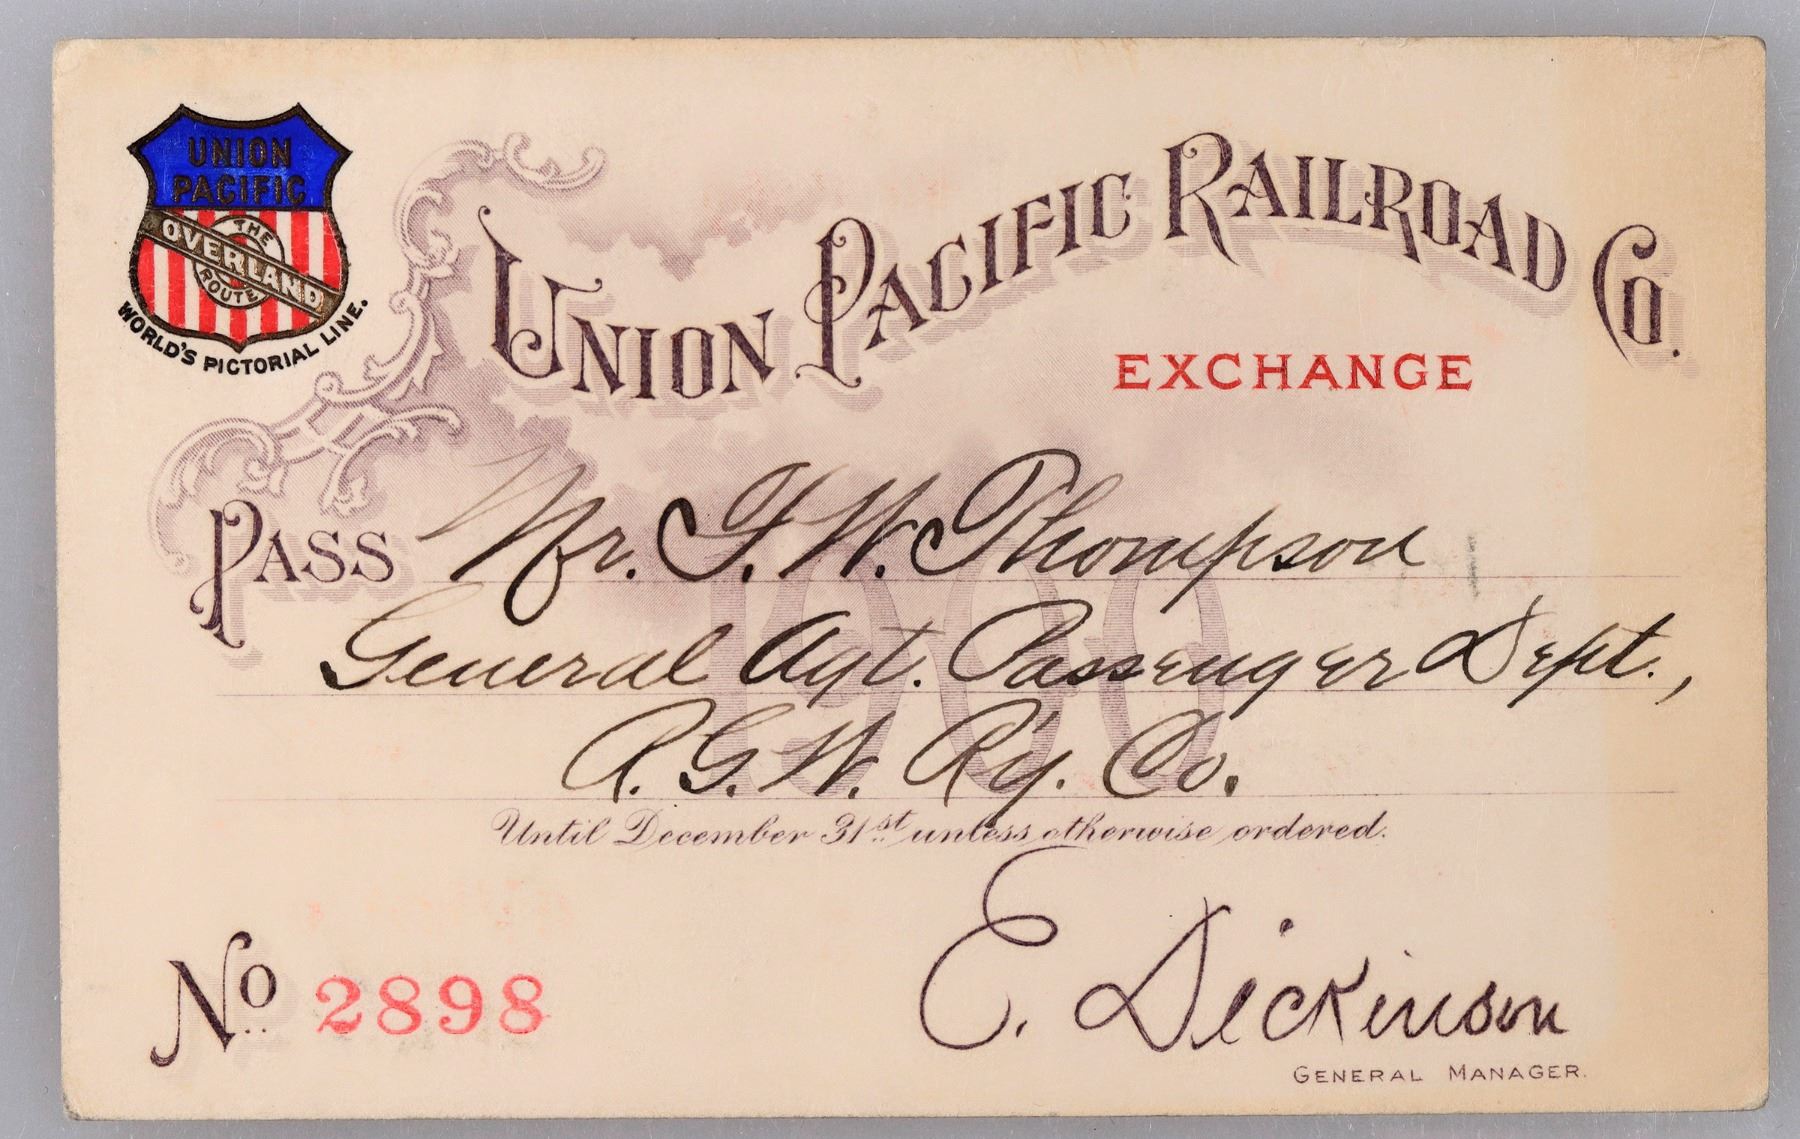 UNION
PACIFIC
THE
OVERLAND
ROUTE
WORLD'S PICTORIAL LINE.
UNION PACIFIC RAILROAD CO.
EXCHANGE
1900
PASS Mr. F. W. Thompson
General Agt. Passenger Dept.,
R. G. W. R'y. Co.
Until December 31st unless otherwise ordered.
No 2898
E. Dickinson
GENERAL MANAGER.